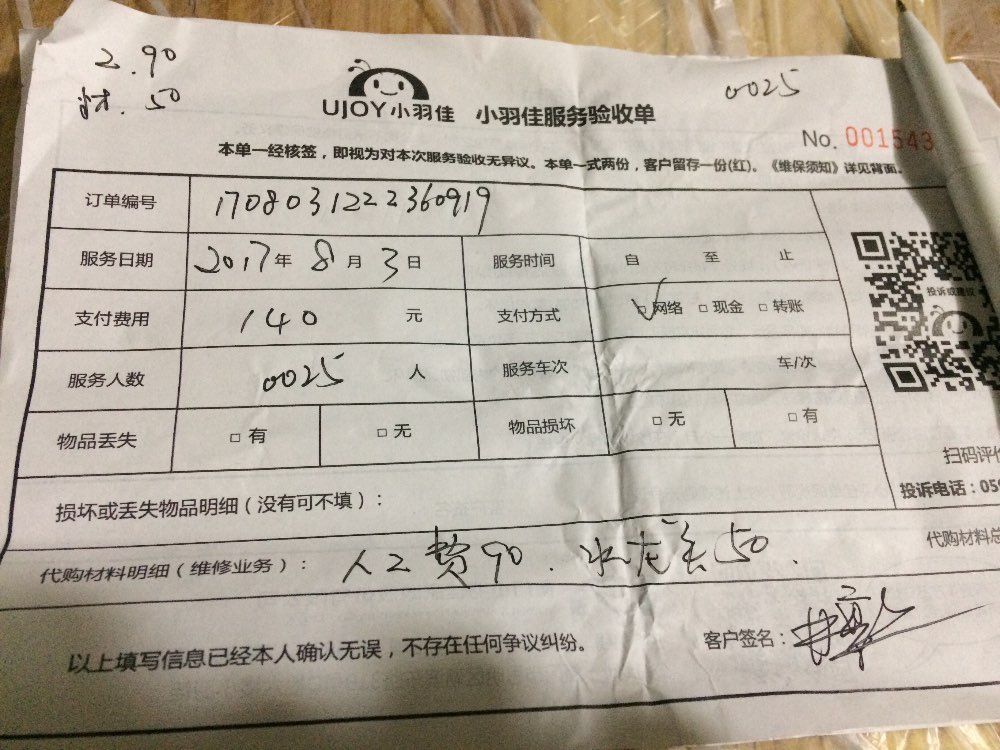 2.90
材.50
0025
UJOY小羽佳 小羽佳服务验收单
No. 001543
本单一经核签，即视为对本次服务验收无异议。本单一式两份，客户留存一份(红)。《维保须知》详见背面。
订单编号 1708031222360919
服务日期 2017年 8月 3日 服务时间 自 至 止
支付费用 140 元 支付方式 ☑网络 □现金 □转账
投诉或建议
服务人数 0025 人 服务车次 车/次
物品丢失 □有 □无 物品损坏 □无 □有
扫码评价
损坏或丢失物品明细（没有可不填）：
投诉电话：059
代购材料明细（维修业务）： 人工费90. 水龙头50.
代购材料总
以上填写信息已经本人确认无误，不存在任何争议纠纷。
客户签名：